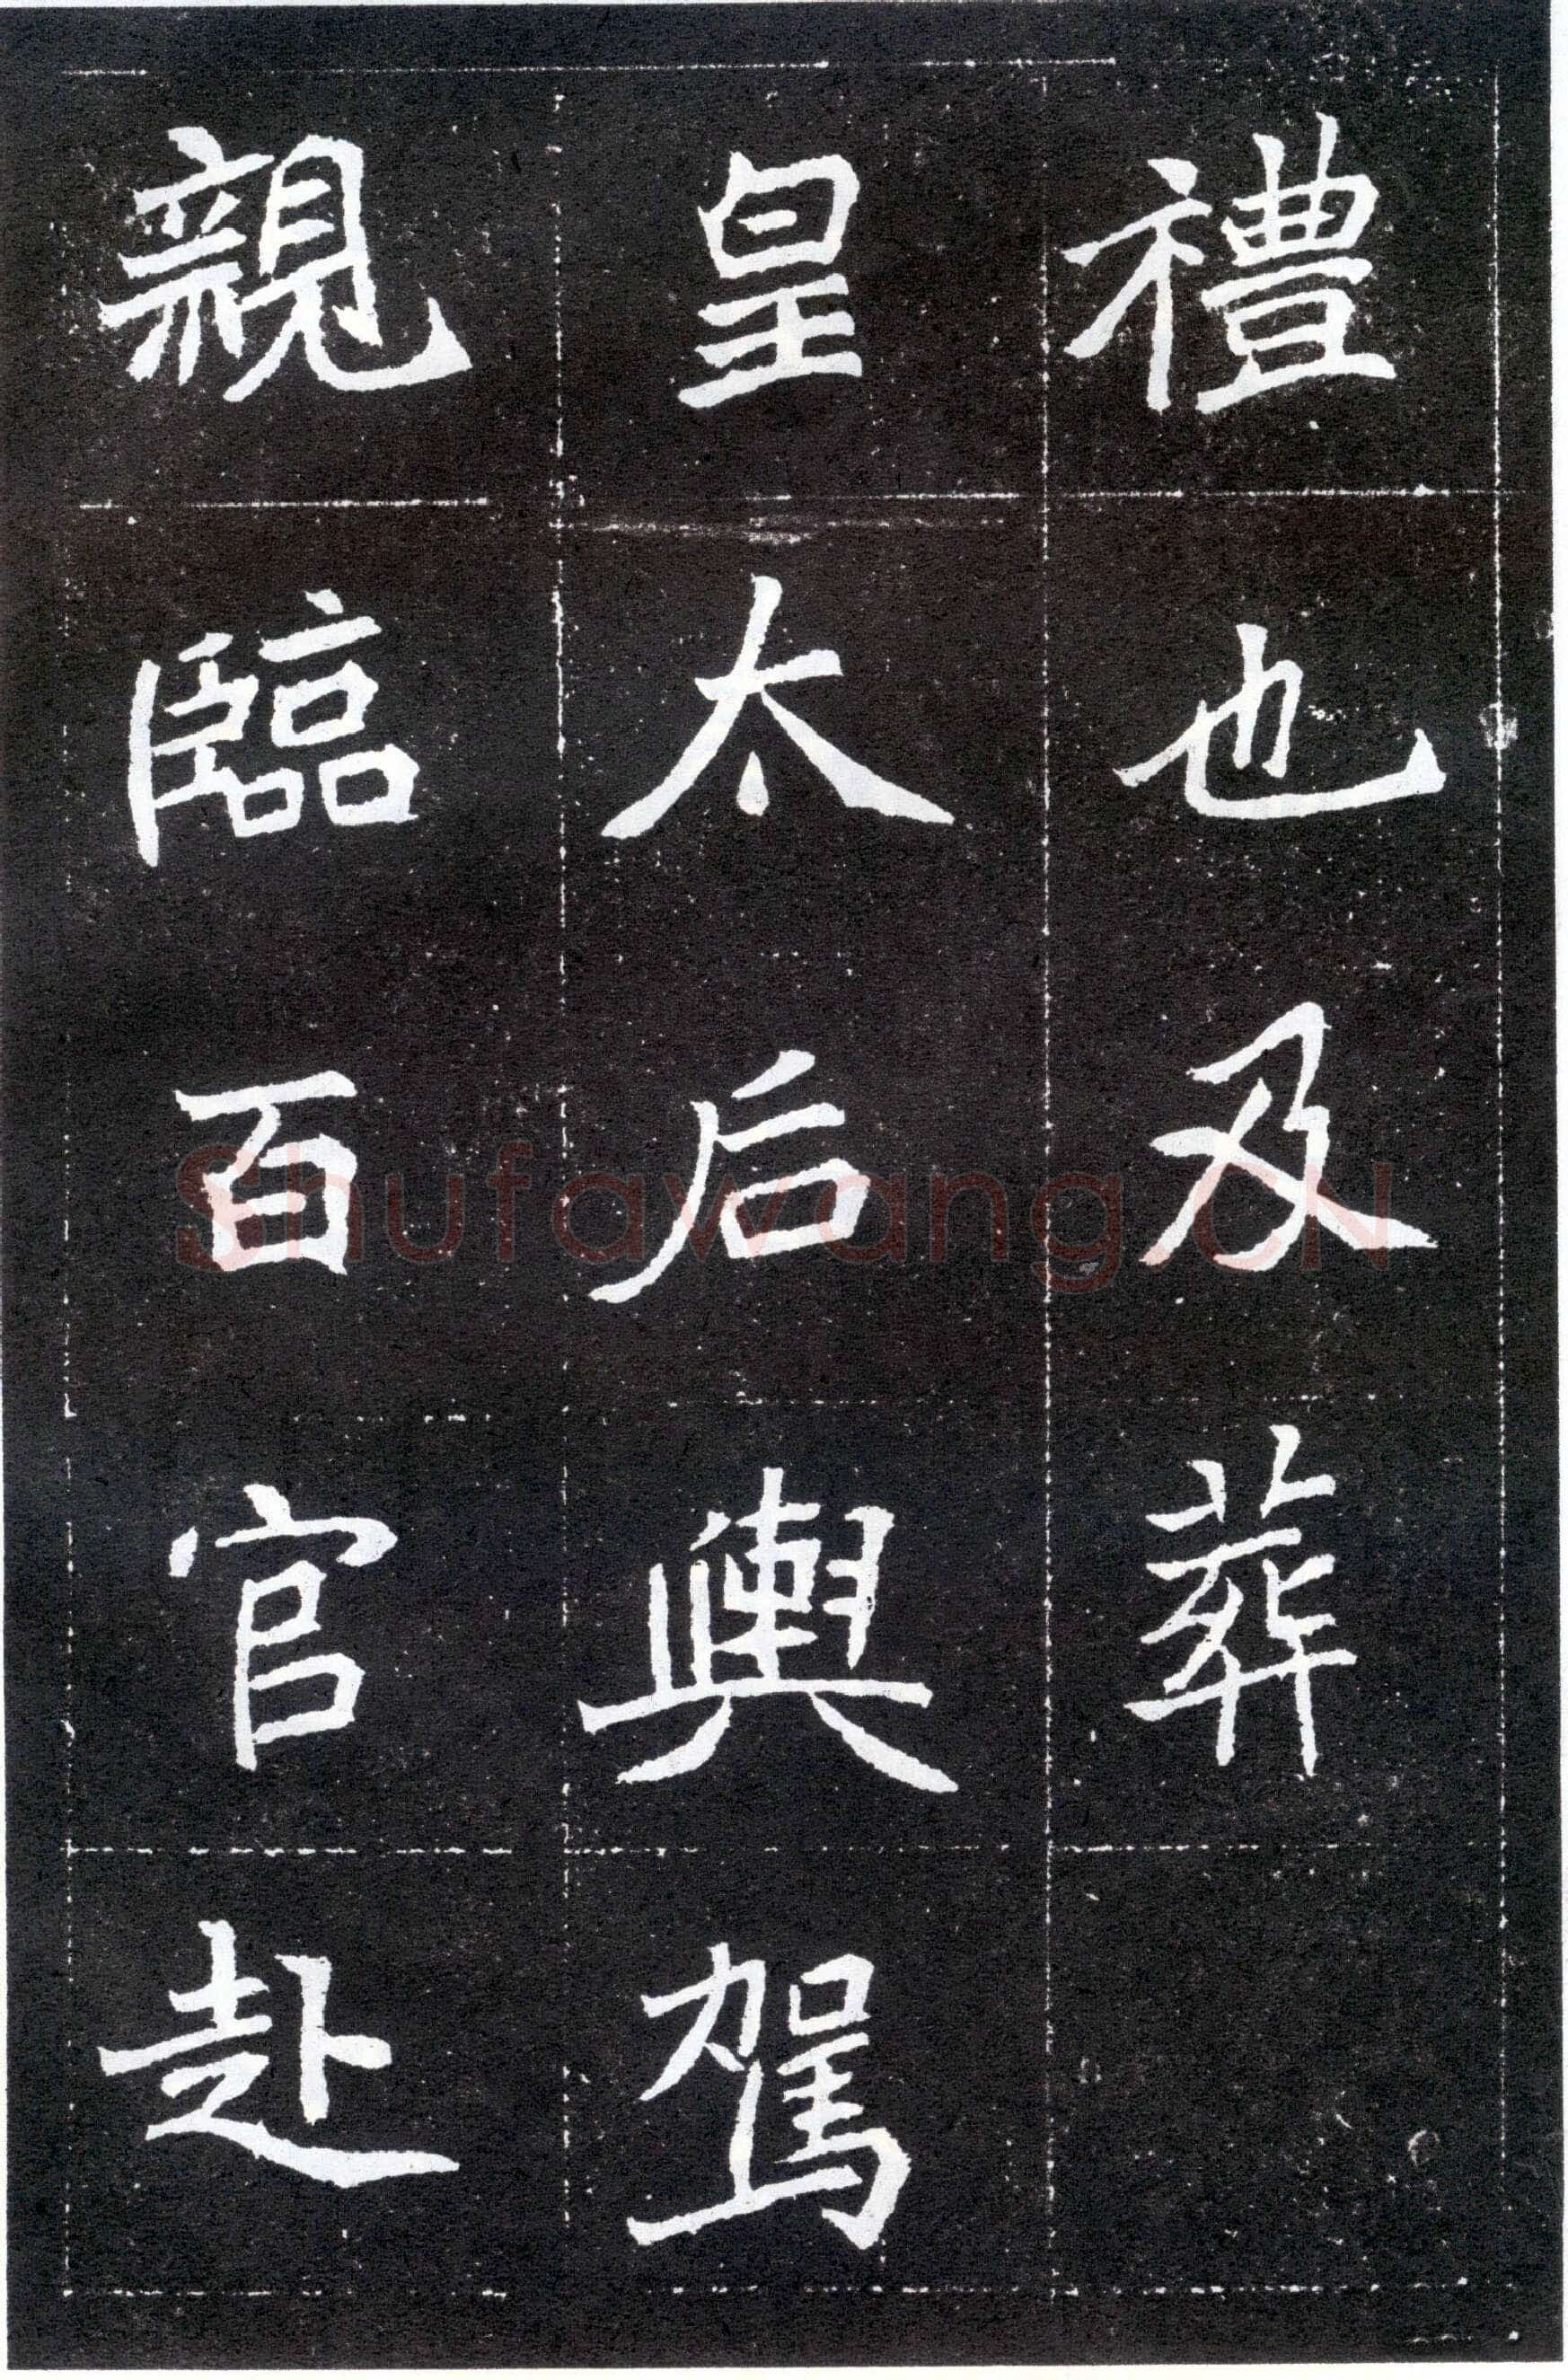 禮也及葬
皇太后輿駕
親臨百官赴
Shufawang.CN